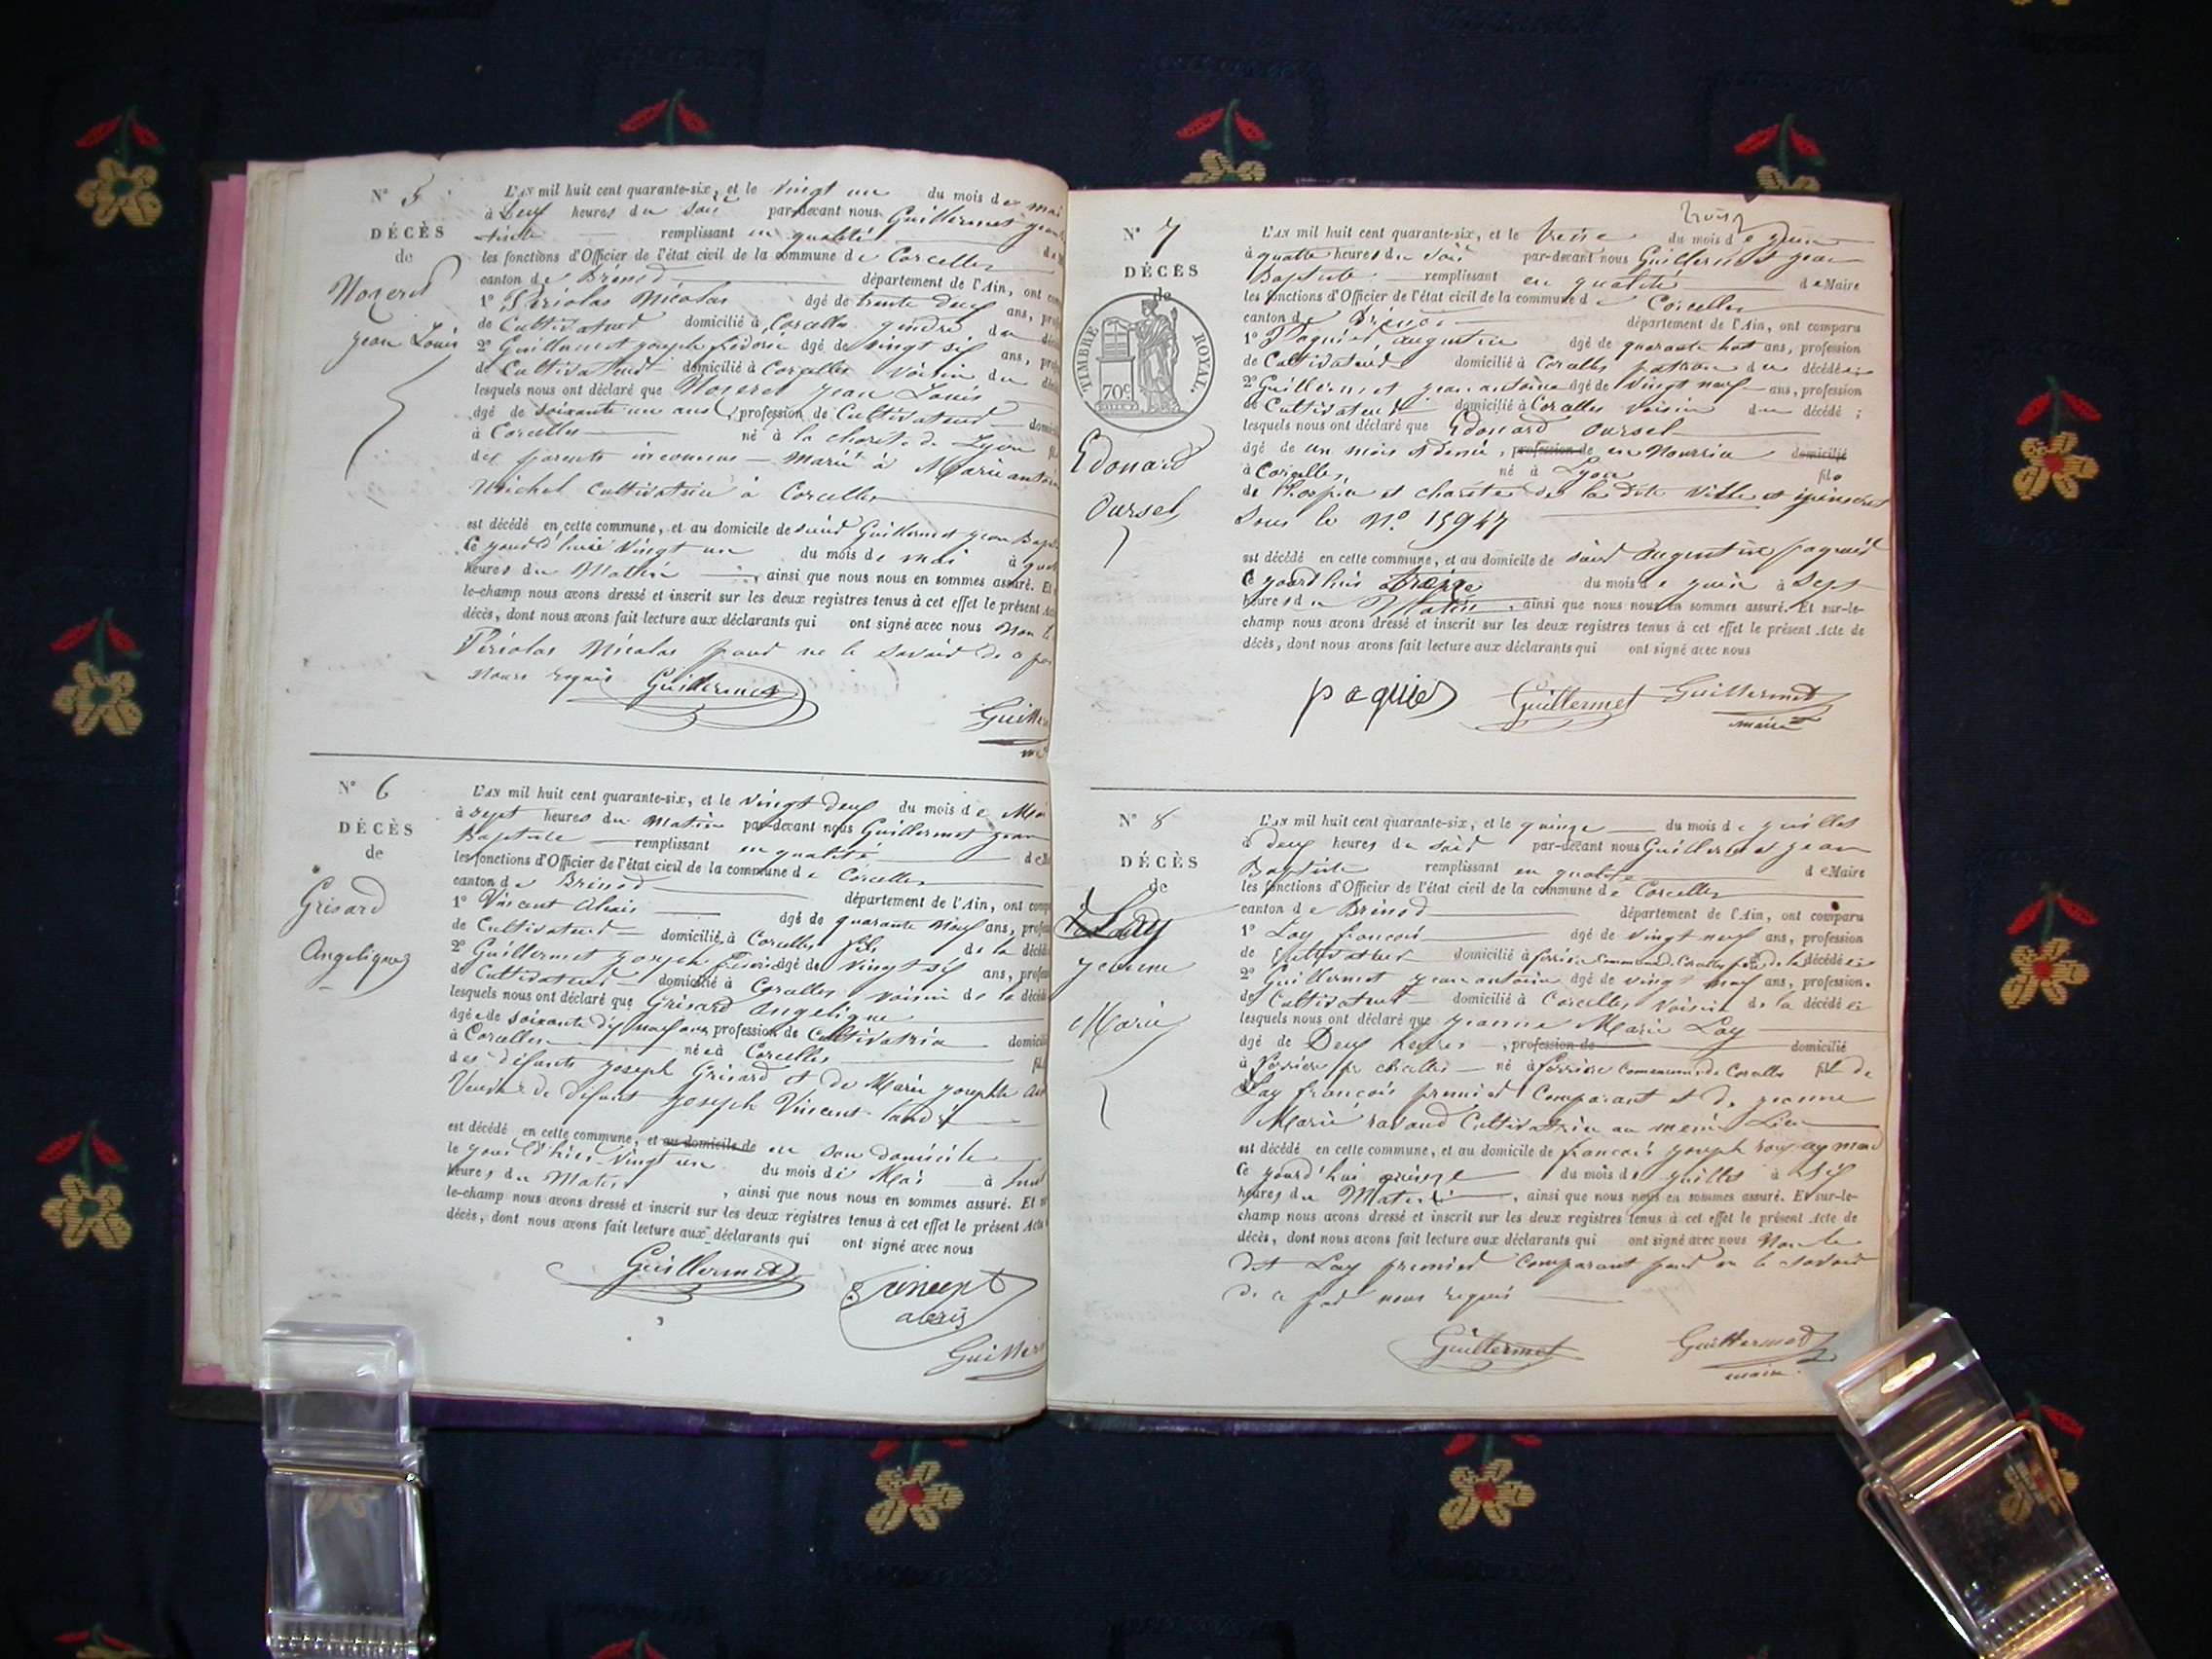 N° 5
DÉCÈS
de
Nozeret
Jean Louis
L'AN mil huit cent quarante-six, et le vingt un du mois de mai
à Deux heures du soir par-devant nous Guillermet Jean
remplissant en qualité de
les fonctions d'Officier de l'état civil de la commune de Corcelles
canton de Brénod département de l'Ain, ont com
1° Périolas Nicolas âgé de trente deux ans, prof
de Cultivateur domicilié à Corcelles gendre du déc
2° Guillermet Joseph âgé de vingt six ans, prof
de Cultivateur domicilié à Corcelles voisin du déc
lesquels nous ont déclaré que Nozeret Jean Louis
âgé de soixante un ans profession de Cultivateur domici
à Corcelles né à la charité de Lyon fil
des parents inconnus marié à Marie antoi
Michel Cultivatrice à Corcelles
est décédé en cette commune, et au domicile de Guillermet Jean Bapt
Ce jourd'hui vingt un du mois de mai à
heures du Matin , ainsi que nous nous en sommes assuré. Et
le-champ nous avons dressé et inscrit sur les deux registres tenus à cet effet le présent Acte
décès, dont nous avons fait lecture aux déclarants qui ont signé avec nous Non
Périolas Nicolas pour ne le savoir de ce
nous requis Guillermet
Guillerm
N° 6
DÉCÈS
de
Grisard
Angelique
L'AN mil huit cent quarante-six, et le vingt deux du mois de Mai
à sept heures du matin par-devant nous Guillermet Jean
Baptiste remplissant en qualité de M
les fonctions d'Officier de l'état civil de la commune de Corcelles
canton de Brénod département de l'Ain, ont comp
1° Vincent Alexis âgé de quarante Neuf ans, profes
de Cultivateur domicilié à Corcelles fils de la décéd
2° Guillermet Joseph âgé de vingt six ans, profes
de Cultivateur domicilié à Corcelles voisin de la décéd
lesquels nous ont déclaré que Grisard Angelique
âgée de soixante dix neuf ans profession de Cultivatrice domicili
à Corcelles née à Corcelles fil
des défunts Joseph Grisard et de Marie Josephte
Veuve de défunt Joseph Vincent
est décédé en cette commune, et au domicile de en son domicile
le jour d'hier vingt un du mois de Mai à huit
heures du Matin , ainsi que nous nous en sommes assuré. Et
le-champ nous avons dressé et inscrit sur les deux registres tenus à cet effet le présent Acte
décès, dont nous avons fait lecture aux déclarants qui ont signé avec nous
Guillermet
Vincent
alexis
Guillerm
N° 7
DÉCÈS
de
TIMBRE ROYAL.
70c
Edouard
Oursel
L'AN mil huit cent quarante-six, et le treize du mois de Juin
à quatre heures du soir par-devant nous Guillermet Jean
Baptiste remplissant en qualité de Maire
les fonctions d'Officier de l'état civil de la commune de Corcelles
canton de Brénod département de l'Ain, ont comparu
1° Paquier, Augustin âgé de quarante huit ans, profession
de Cultivateur domicilié à Corcelles patron du décédé
2° Guillermet Jean antoine âgé de vingt neuf ans, profession
de Cultivateur domicilié à Corcelles voisin du décédé ;
lesquels nous ont déclaré que Edouard Oursel
âgé de un mois et demi , profession de en Nourrice domicilié
à Corcelles né à Lyon fils
de l'hospice et charité de la dite Ville et inscrit
sous le N° 15947
est décédé en cette commune, et au domicile de Augustin paquier
Ce jourd'hui treize du mois de juin à Sept
heures du Matin , ainsi que nous nous en sommes assuré. Et sur-le-
champ nous avons dressé et inscrit sur les deux registres tenus à cet effet le présent Acte de
décès, dont nous avons fait lecture aux déclarants qui ont signé avec nous
paquier Guillermet Guillermet
maire
N° 8
DÉCÈS
de
Lay
Jeanne
Marie
L'AN mil huit cent quarante-six, et le quinze du mois de Juillet
à deux heures du soir par-devant nous Guillermet Jean
Baptiste remplissant en qualité de Maire
les fonctions d'Officier de l'état civil de la commune de Corcelles
canton de Brénod département de l'Ain, ont comparu
1° Lay françois âgé de vingt neuf ans, profession
de Cultivateur domicilié à ferrière Commune de Corcelles père de la décédée
2° Guillermet Jean antoine âgé de vingt neuf ans, profession.
de Cultivateur domicilié à Corcelles voisin de la décédée
lesquels nous ont déclaré que Jeanne Marie Lay
âgé de Deux heures , profession de domicilié
à ferrière né à ferrière Commune de Corcelles fil de
Lay françois premier Comparant et de Jeanne
Marie ravaud Cultivatrice au même Lieu
est décédé en cette commune, et au domicile de françois Joseph
Ce jourd'hui quinze du mois de Juillet à six
heures du Matin , ainsi que nous nous en sommes assuré. Et sur-le-
champ nous avons dressé et inscrit sur les deux registres tenus à cet effet le présent Acte de
décès, dont nous avons fait lecture aux déclarants qui ont signé avec nous Non le
dit Lay premier Comparant pour ne le savoir
de ce nous requis
Guillermet
Guillermet
maire